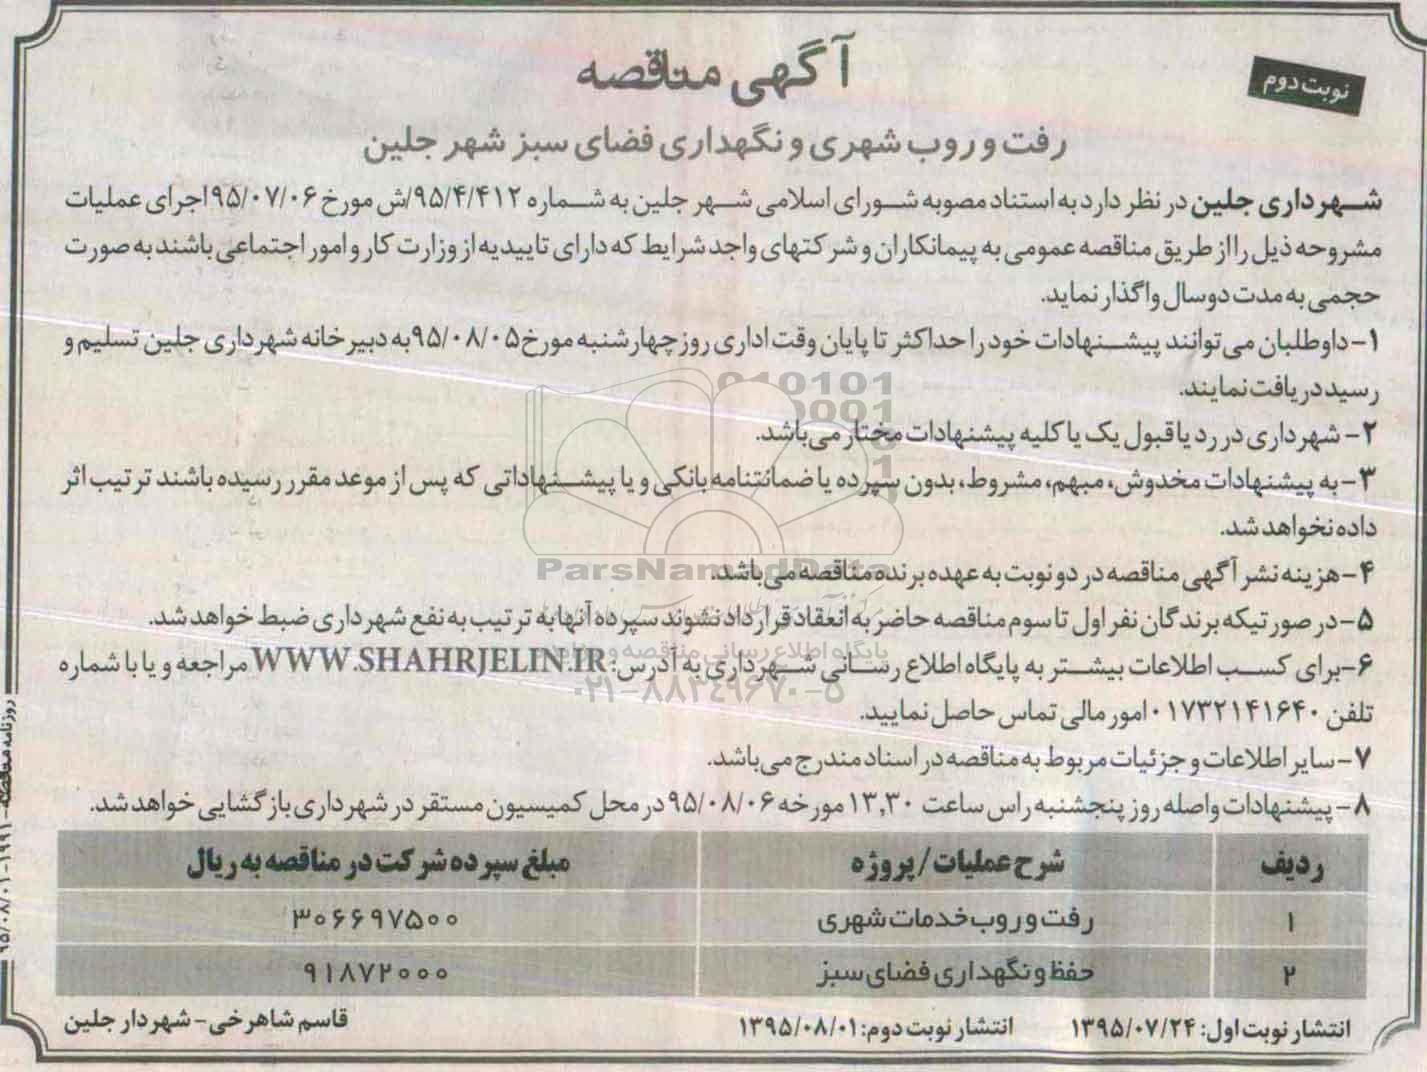 آگهی مناقصه
نوبت دوم
رفت و روب شهری و نگهداری فضای سبز شهر جلین
شهرداری جلین در نظر دارد به استناد مصوبه شورای اسلامی شهر جلین به شماره ۹۵/۴/۴۱۲/ش مورخ ۹۵/۰۷/۰۶ اجرای عملیات
مشروحه ذیل را از طریق مناقصه عمومی به پیمانکاران و شرکتهای واجد شرایط که دارای تاییدیه از وزارت کار و امور اجتماعی باشند به صورت
حجمی به مدت دو سال واگذار نماید.
۱- داوطلبان می‌توانند پیشنهادات خود را حداکثر تا پایان وقت اداری روز چهارشنبه مورخ ۹۵/۰۸/۰۵ به دبیرخانه شهرداری جلین تسلیم و
رسید دریافت نمایند.
۲- شهرداری در رد یا قبول یک یا کلیه پیشنهادات مختار می‌باشد.
۳- به پیشنهادات مخدوش، مبهم، مشروط، بدون سپرده یا ضمانتنامه بانکی و یا پیشنهاداتی که پس از موعد مقرر رسیده باشند ترتیب اثر
داده نخواهد شد.
۴- هزینه نشر آگهی مناقصه در دو نوبت به عهده برنده مناقصه می‌باشد.
۵- در صورتیکه برندگان نفر اول تا سوم مناقصه حاضر به انعقاد قرارداد نشوند سپرده آنها به ترتیب به نفع شهرداری ضبط خواهد شد.
۶- برای کسب اطلاعات بیشتر به پایگاه اطلاع رسانی شهرداری به آدرس: WWW.SHAHRJELIN.IR مراجعه و یا با شماره
تلفن ۰۱۷۳۲۱۴۱۶۴۰ امور مالی تماس حاصل نمایید.
۷- سایر اطلاعات و جزئیات مربوط به مناقصه در اسناد مندرج می‌باشد.
۸- پیشنهادات واصله روز پنجشنبه راس ساعت ۱۳,۳۰ مورخه ۹۵/۰۸/۰۶ در محل کمیسیون مستقر در شهرداری بازگشایی خواهد شد.
ردیف شرح عملیات / پروژه مبلغ سپرده شرکت در مناقصه به ریال
۱ رفت و روب خدمات شهری ۳۰۶۶۹۷۵۰۰
۲ حفظ و نگهداری فضای سبز ۹۱۸۷۲۰۰۰
انتشار نوبت اول: ۱۳۹۵/۰۷/۲۴ انتشار نوبت دوم: ۱۳۹۵/۰۸/۰۱ قاسم شاهرخی - شهردار جلین
روزنامه مناقصه - ۱۹۹۱ - ۹۵/۰۸/۰۱
ParsNamadData
پایگاه اطلاع رسانی مناقصه و مزایده
۰۲۱-۸۸۳۴۹۶۷۰-۵